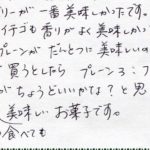 リーが一番美味しかったです。
イチゴも香りがよく美味しかっ
プレーンがだんとつに美味しいの
買うとしたら プレーン3:フ
がちょうどいいかな?と思
美味しいお菓子です。
食べても